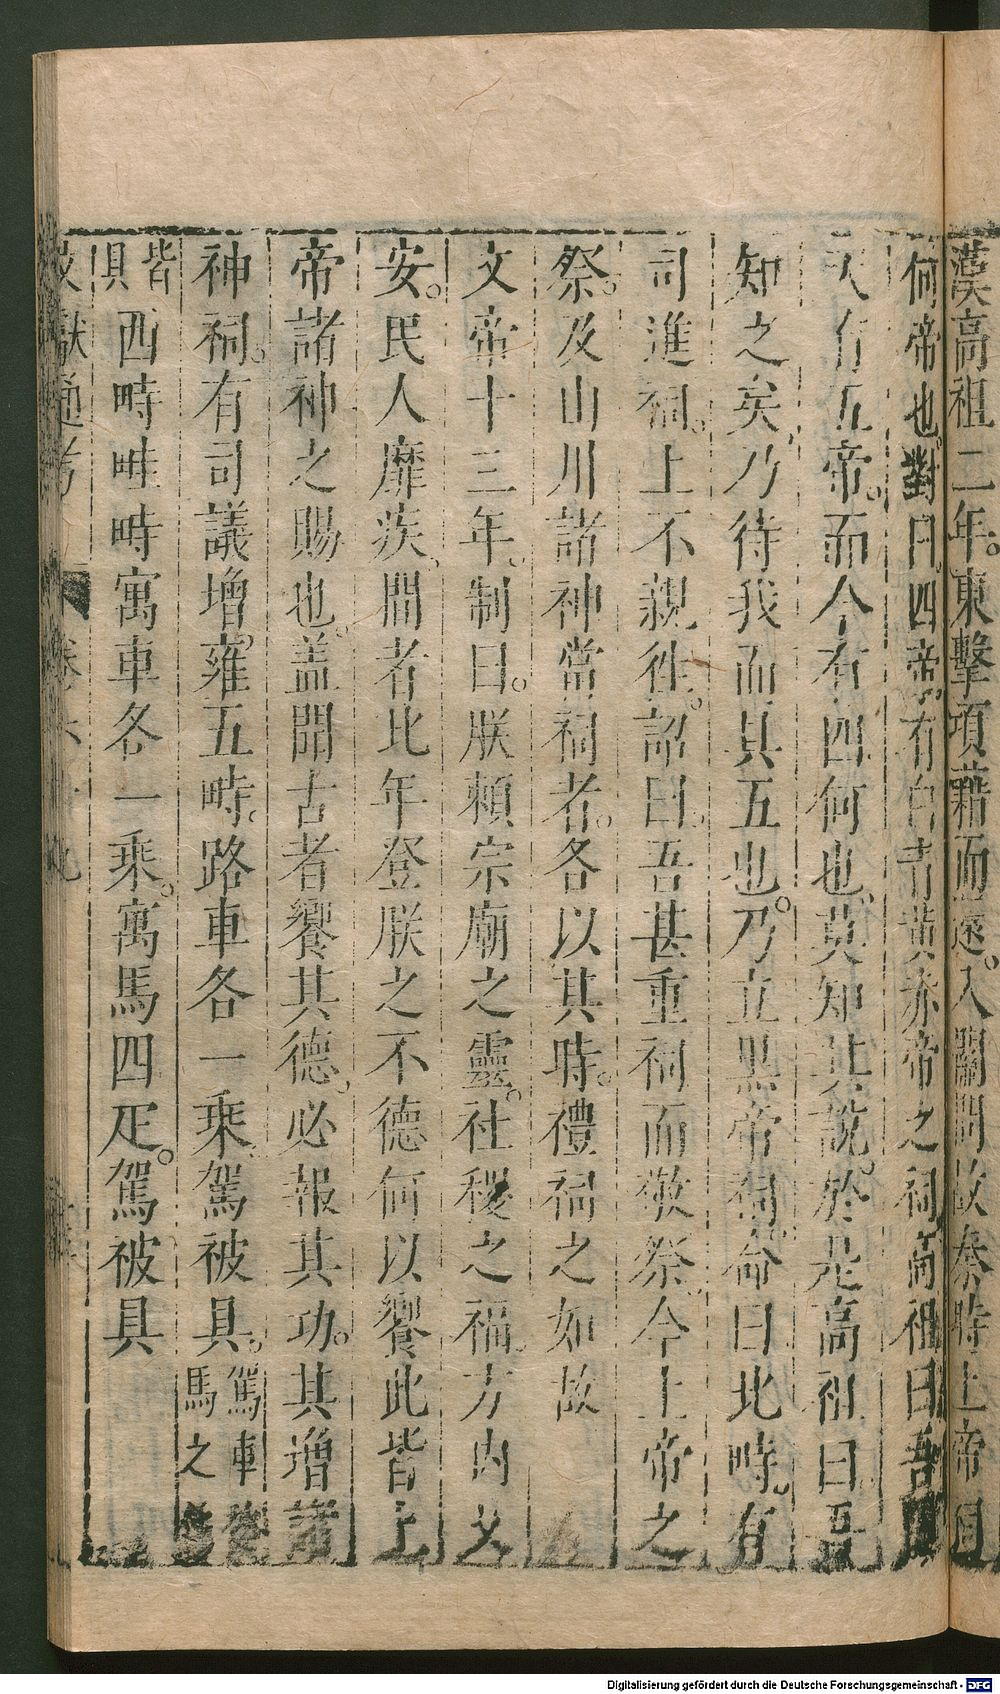 漢高祖二年。東擊項藉而還。入關問故秦時上帝祠
何帝也。對曰。四帝。有白青黃赤帝之祠。高祖曰。吾聞
天有五帝。而今有四何也。莫知其說。於是高祖曰。吾
知之矣。乃待我而具五也。乃立黑帝祠。命曰北畤。有
司進祠。上不親徃。詔曰。吾甚重祠而敬祭。今上帝之
祭。及山川諸神當祠者。各以其時。禮祠之如故
文帝十三年。制曰。朕賴宗廟之靈。社稷之福。方內乂
安。民人靡疾。間者比年登。朕之不德何以饗此。皆上
帝諸神之賜也。盖聞古者饗其德。必報其功。其增諸
神祠。有司議增雍五畤。路車各一乘。駕被具。駕車馬之
皆具 西畤畦畤寓車各一乘。寓馬四疋。駕被具
文獻通考 卷六十九
Digitalisierung gefördert durch die Deutsche Forschungsgemeinschaft - DFG